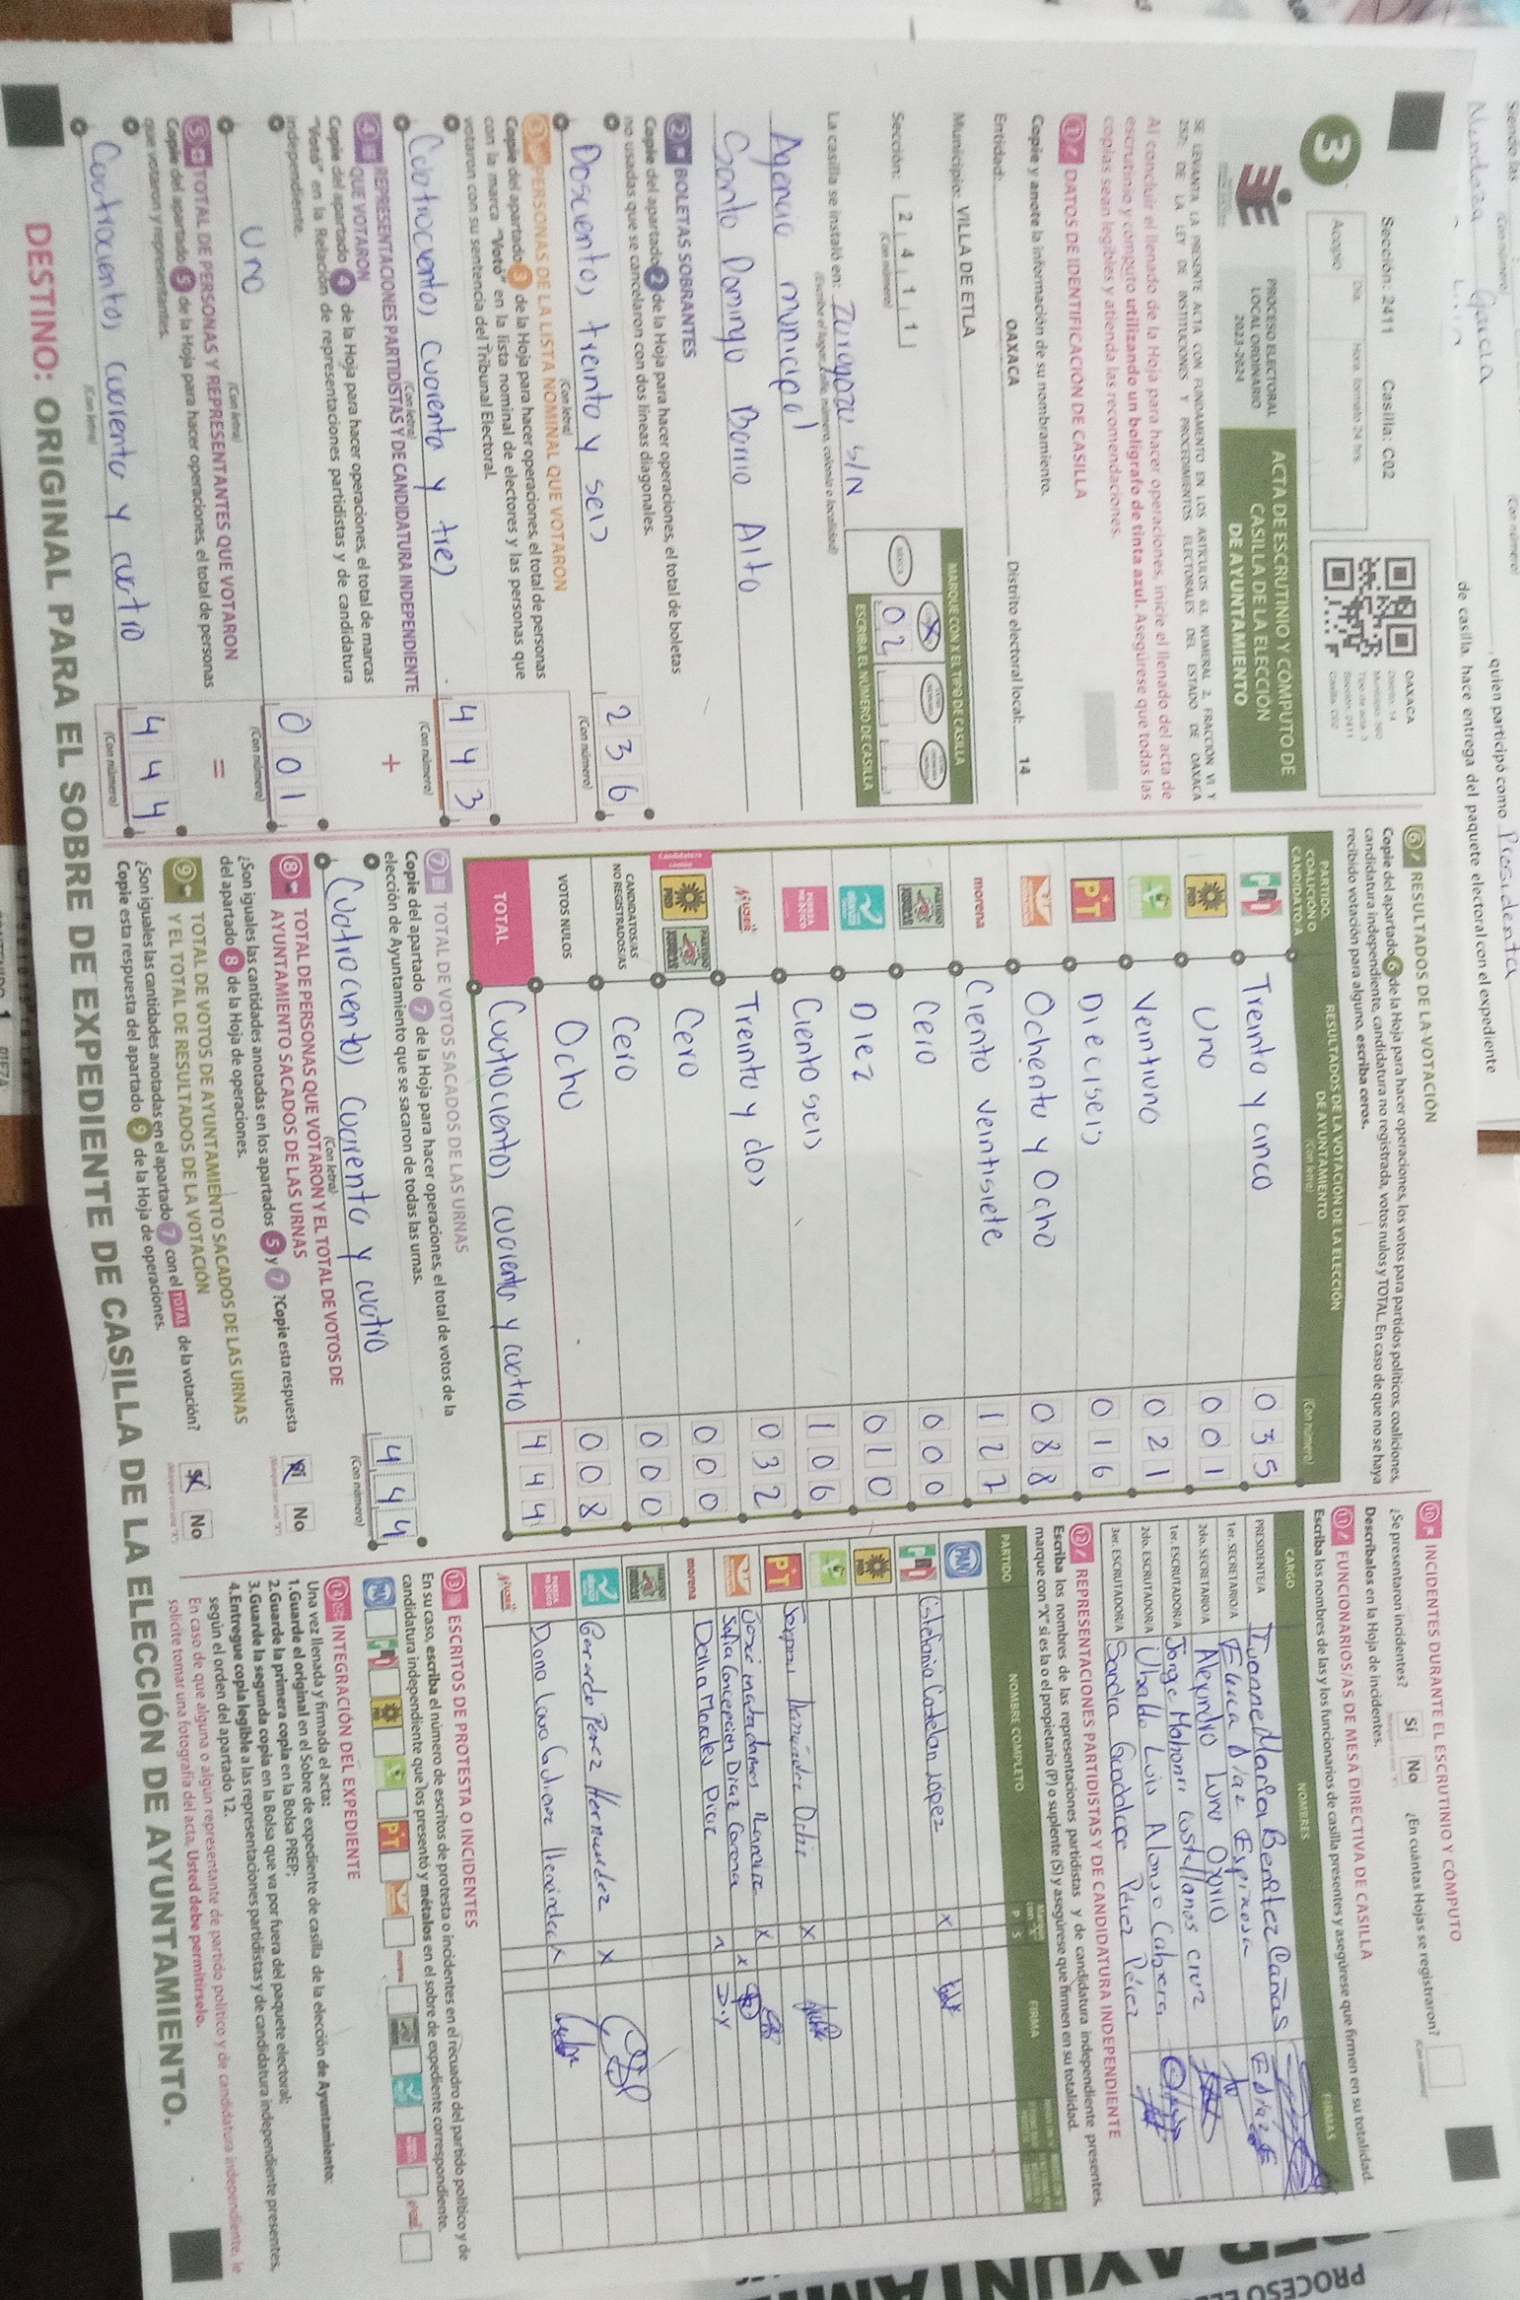 Siendo las
(Con número)
(Con número)
quien participó como Presidenta
Mendoza García
de casilla, hace entrega del paquete electoral con el expediente
Sección: 2411 Casilla: C02
3
Acopio
Día:
Hora formato 24 hrs
OAXACA
PROCESO ELECTORAL
LOCAL ORDINARIO
2023-2024
ACTA DE ESCRUTINIO Y CÓMPUTO DE
CASILLA DE LA ELECCIÓN
DE AYUNTAMIENTO
SE LEVANTA LA PRESENTE ACTA CON FUNDAMENTO EN LOS ARTÍCULOS 63, NUMERAL 2, FRACCIÓN VI Y
257; DE LA LEY DE INSTITUCIONES Y PROCEDIMIENTOS ELECTORALES DEL ESTADO DE OAXACA
Al concluir el llenado de la Hoja para hacer operaciones, inicie el llenado del acta de
escrutinio y cómputo utilizando un bolígrafo de tinta azul. Asegúrese que todas las
copias sean legibles y atienda las recomendaciones.
1 DATOS DE IDENTIFICACIÓN DE CASILLA
Copie y anote la información de su nombramiento.
Entidad: OAXACA Distrito electoral local: 14
Municipio: VILLA DE ETLA
MARQUE CON X EL TIPO DE CASILLA
Sección: 2 4 1 1
(Con número)
X
ESCRIBA EL NÚMERO DE CASILLA
02
La casilla se instaló en: Zaragoza S/N
(Escriba el lugar, calle, número, colonia o localidad)
Agencia municipal
Santo Domingo Barrio Alto
2 BOLETAS SOBRANTES
Copie del apartado 2 de la Hoja para hacer operaciones, el total de boletas
no usadas que se cancelaron con dos líneas diagonales.
Doscientos treinta y seis 2 3 6
(Con letra) (Con número)
3 PERSONAS DE LA LISTA NOMINAL QUE VOTARON
Copie del apartado 3 de la Hoja para hacer operaciones, el total de personas
con la marca "Votó" en la lista nominal de electores y las personas que
votaron con su sentencia del Tribunal Electoral.
Cuatrocientos cuarenta y tres 4 4 3
(Con letra) (Con número)
4 REPRESENTACIONES PARTIDISTAS Y DE CANDIDATURA INDEPENDIENTE
QUE VOTARON
+
Copie del apartado 4 de la Hoja para hacer operaciones, el total de marcas
"Votó" en la Relación de representaciones partidistas y de candidatura
independiente.
Uno 0 0 1
(Con letra) (Con número)
5 TOTAL DE PERSONAS Y REPRESENTANTES QUE VOTARON
=
Copie del apartado 5 de la Hoja para hacer operaciones, el total de personas
que votaron y representantes.
Cuatrocientos cuarenta y cuatro 4 4 4
(Con letra) (Con número)
6 RESULTADOS DE LA VOTACIÓN
Copie del apartado 6 de la Hoja para hacer operaciones, los votos para partidos políticos, coaliciones,
candidatura independiente, candidatura no registrada, votos nulos y TOTAL. En caso de que no se haya
recibido votación para alguno, escriba ceros.
PARTIDO, COALICIÓN O CANDIDATO/A
RESULTADOS DE LA VOTACIÓN DE LA ELECCIÓN DE AYUNTAMIENTO
(Con letra)
(Con número)
PRI Treinta y cinco 0 3 5
PRD Uno 0 0 1
Veintiuno 0 2 1
PT Dieciseis 0 1 6
Ochenta y Ocho 0 8 8
morena Ciento veintisiete 1 2 7
Cero 0 0 0
Diez 0 1 0
FUERZA MÉXICO Ciento seis 1 0 6
Mujer Treinta y dos 0 3 2
Candidatura común
PRD Cero 0 0 0
CANDIDATOS/AS NO REGISTRADOS/AS Cero 0 0 0
VOTOS NULOS Ocho 0 0 8
TOTAL Cuatrocientos cuarenta y cuatro 4 4 4
7 TOTAL DE VOTOS SACADOS DE LAS URNAS
Copie del apartado 7 de la Hoja para hacer operaciones, el total de votos de la
elección de Ayuntamiento que se sacaron de todas las urnas.
Cuatrocientos cuarenta y cuatro 4 4 4
(Con letra) (Con número)
8 TOTAL DE PERSONAS QUE VOTARON Y EL TOTAL DE VOTOS DE
AYUNTAMIENTO SACADOS DE LAS URNAS
¿Son iguales las cantidades anotadas en los apartados 5 y 7 ? Copie esta respuesta
del apartado 8 de la Hoja de operaciones.
Sí No
9 TOTAL DE VOTOS DE AYUNTAMIENTO SACADOS DE LAS URNAS
Y EL TOTAL DE RESULTADOS DE LA VOTACIÓN
¿Son iguales las cantidades anotadas en el apartado 7 con el TOTAL de la votación?
Copie esta respuesta del apartado 9 de la Hoja de operaciones.
Sí No
10 INCIDENTES DURANTE EL ESCRUTINIO Y CÓMPUTO
¿Se presentaron incidentes? Sí No ¿En cuántas Hojas se registraron?
Descríbalos en la Hoja de incidentes.
11 FUNCIONARIOS/AS DE MESA DIRECTIVA DE CASILLA
Escriba los nombres de las y los funcionarios de casilla presentes y asegúrese que firmen en su totalidad.
CARGO NOMBRES FIRMAS
PRESIDENTE/A Ivonne Marlen Benitez Cañas
1er. SECRETARIO/A Elena Díaz Espinosa
2do. SECRETARIO/A Alejandro Luna Osorio
1er. ESCRUTADOR/A Jorge Mahonri Castellanos Cruz
2do. ESCRUTADOR/A Ubaldo Luis Alonso Cabrera
3er. ESCRUTADOR/A Sandra Guadalupe Pérez Pérez
12 REPRESENTACIONES PARTIDISTAS Y DE CANDIDATURA INDEPENDIENTE
Escriba los nombres de las representaciones partidistas y de candidatura independiente presentes,
marque con "X" si es la o el propietario (P) o suplente (S) y asegúrese que firmen en su totalidad.
PARTIDO NOMBRE COMPLETO P S FIRMA
PAN
PRI Estefania Castelan López X
PRD
PT Hernández Ortiz X
José Ramírez X
Sofia Concepcion Diaz Corona X
morena Dalia Morales Diaz
Gerardo Perez Hernandez X
FUERZA MÉXICO Diana Laura Hernández X
Mujer
13 ESCRITOS DE PROTESTA O INCIDENTES
En su caso, escriba el número de escritos de protesta o incidentes en el recuadro del partido político y de
candidatura independiente que los presentó y métalos en el sobre de expediente correspondiente.
14 INTEGRACIÓN DEL EXPEDIENTE
Una vez llenada y firmada el acta:
1.Guarde el original en el Sobre de expediente de casilla de la elección de Ayuntamiento;
2.Guarde la primera copia en la Bolsa PREP;
3.Guarde la segunda copia en la Bolsa que va por fuera del paquete electoral;
4.Entregue copia legible a las representaciones partidistas y de candidatura independiente presentes,
según el orden del apartado 12.
En caso de que alguna o algún representante de partido político y de candidatura independiente, le
solicite tomar una fotografía del acta, Usted debe permitírselo.
DESTINO: ORIGINAL PARA EL SOBRE DE EXPEDIENTE DE CASILLA DE LA ELECCIÓN DE AYUNTAMIENTO.